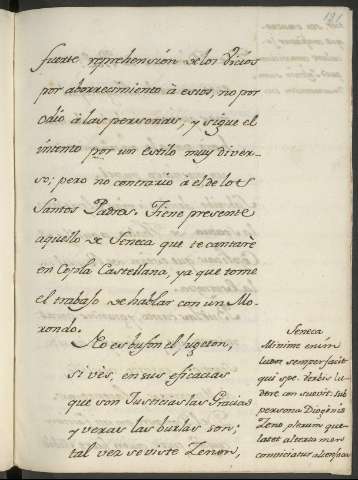 121
fuerte reprehensión de los Vicios
por aborrecimiento à estos, no por
odio à las personas, y sigue el
intento por un estilo muy diver-
so; pero no contrario à el de los
Santos Padres. Tiene presente
aquello de Seneca que te cantarè
en Copla Castellana, ya que tome
el trabajo de hablar con un Mo-
rondo.
No es bufon el Jugeton,
si vès, en sus eficacias
que son Justicias las Gracias
y veras las burlas son;
tal vez se viste Zenon,
Seneca
Minime enim
semper facit
qui verbis lu
dere con
persona Diogenis
Zeno, plerum que
latet altera mens